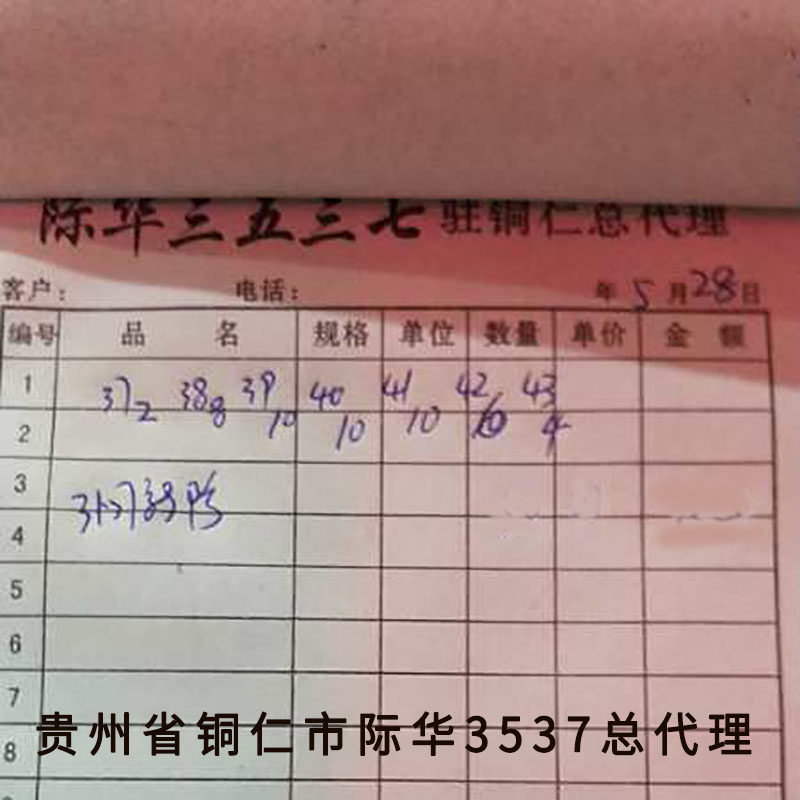 际华三五三七驻铜仁总代理
客户: 电话: 年 5 月 28 日
编号 品 名 规格 单位 数量 单价 金 额
1 37 38 39 40 41 42 43
2 2 8 10 10 10 4
3
4
5
6
7
贵州省铜仁市际华3537总代理
8